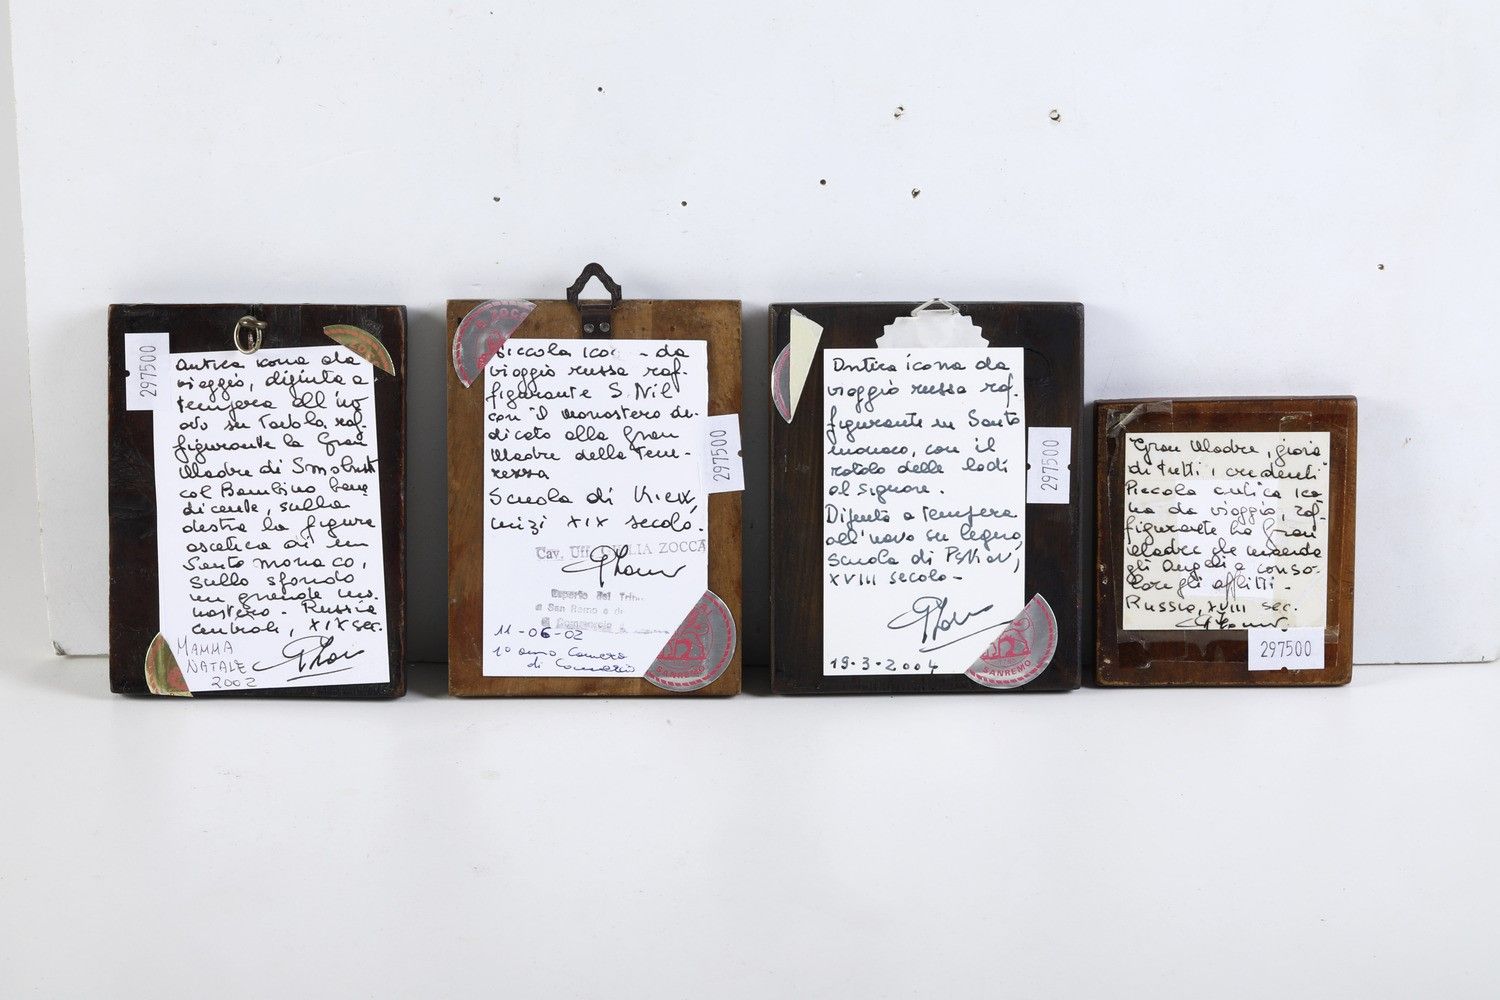 297500
Antica icona da
viaggio, dipinta a
tempera all'uo
ovo su tavola raf-
figurante la Gran
Madre di Smolensk
col Bambino bene
dicente, sulla
destra la figura
ascetica di un
Santo monaco,
sullo sfondo
un grande mo-
nastero - Russia
centrale, XIX sec.
MAMMA
NATALE
2002
ZOCCA
Piccola ico - da
viaggio russa raf-
figurante S. Nil
con il monastero de-
dicato alla Gran
Madre della Tene-
rezza
Scuola di Kiev,
inizi XIX secolo.
Cav. Uff. GIULIA ZOCCA
Esperto del Trib
di San Remo e
11-06-02
1° anno Camera
di Commercio
SANREMO
297500
Antica icona da
viaggio russa raf-
figurante un Santo
monaco, con il
rotolo delle lodi
al Signore.
Dipinta a tempera
all'uovo su legno,
scuola di Pskov,
XVIII secolo -
19-3-2004
SANREMO
297500
Gran Madre, gioia
di tutti i credenti
Piccola antica ico-
na da viaggio, raf-
figurante la Gran
Madre che manda
gli Angeli a conso-
lare gli afflitti -
Russia, XVIII sec.
297500